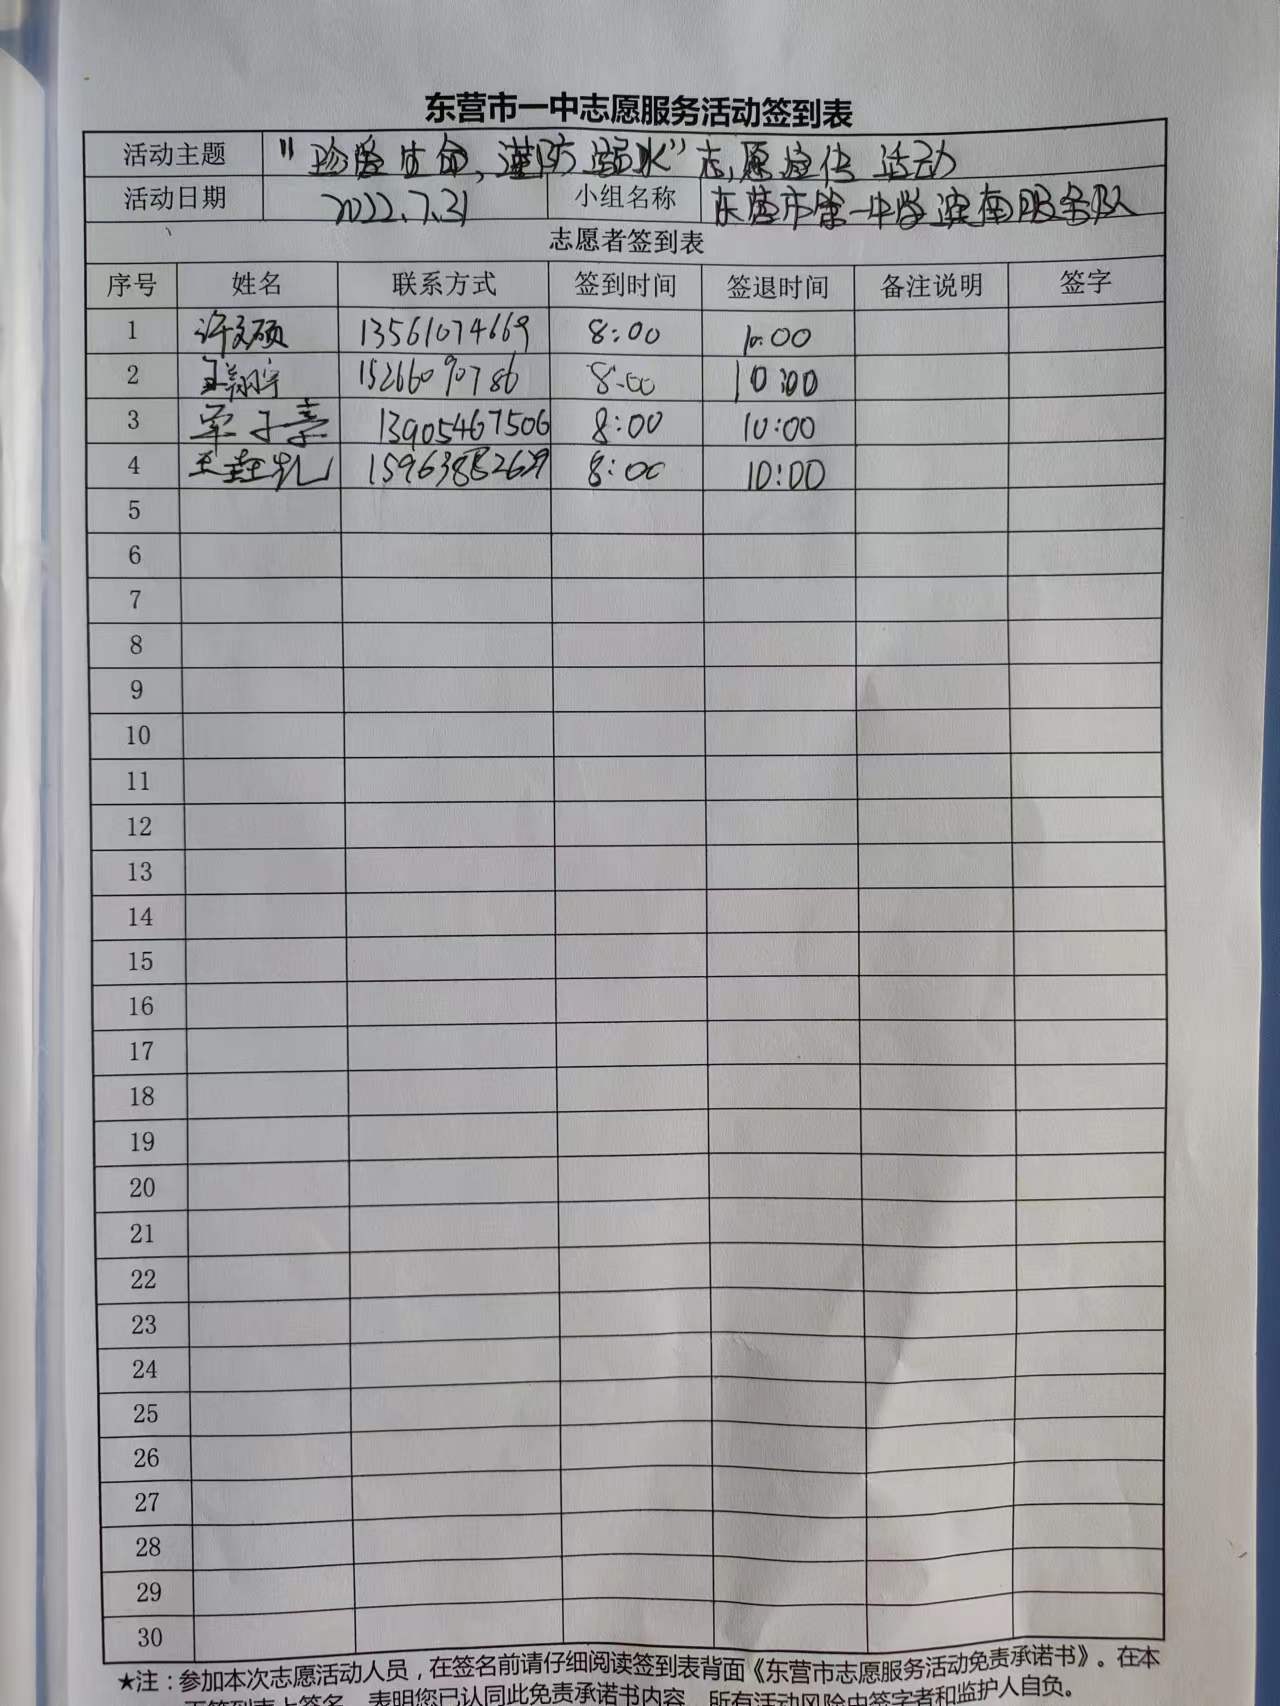 东营市一中志愿服务活动签到表
活动主题 "珍爱生命,谨防溺水"志愿宣传活动
活动日期 2022.7.31 小组名称 东营市第一中学滨南服务队
志愿者签到表
序号 姓名 联系方式 签到时间 签退时间 备注说明 签字
1 许文硕 13561074669 8:00 10:00
2 王翔宇 15266090786 8:00 10:00
3 单子豪 13905467506 8:00 10:00
4 王 8:00 10:00
5
6
7
8
9
10
11
12
13
14
15
16
17
18
19
20
21
22
23
24
25
26
27
28
29
30
★注：参加本次志愿活动人员，在签名前请仔细阅读签到表背面《东营市志愿服务活动免责承诺书》。在本
页签到表上签名，表明您已认同此免责承诺书内容，所有活动风险由签字者和监护人自负。